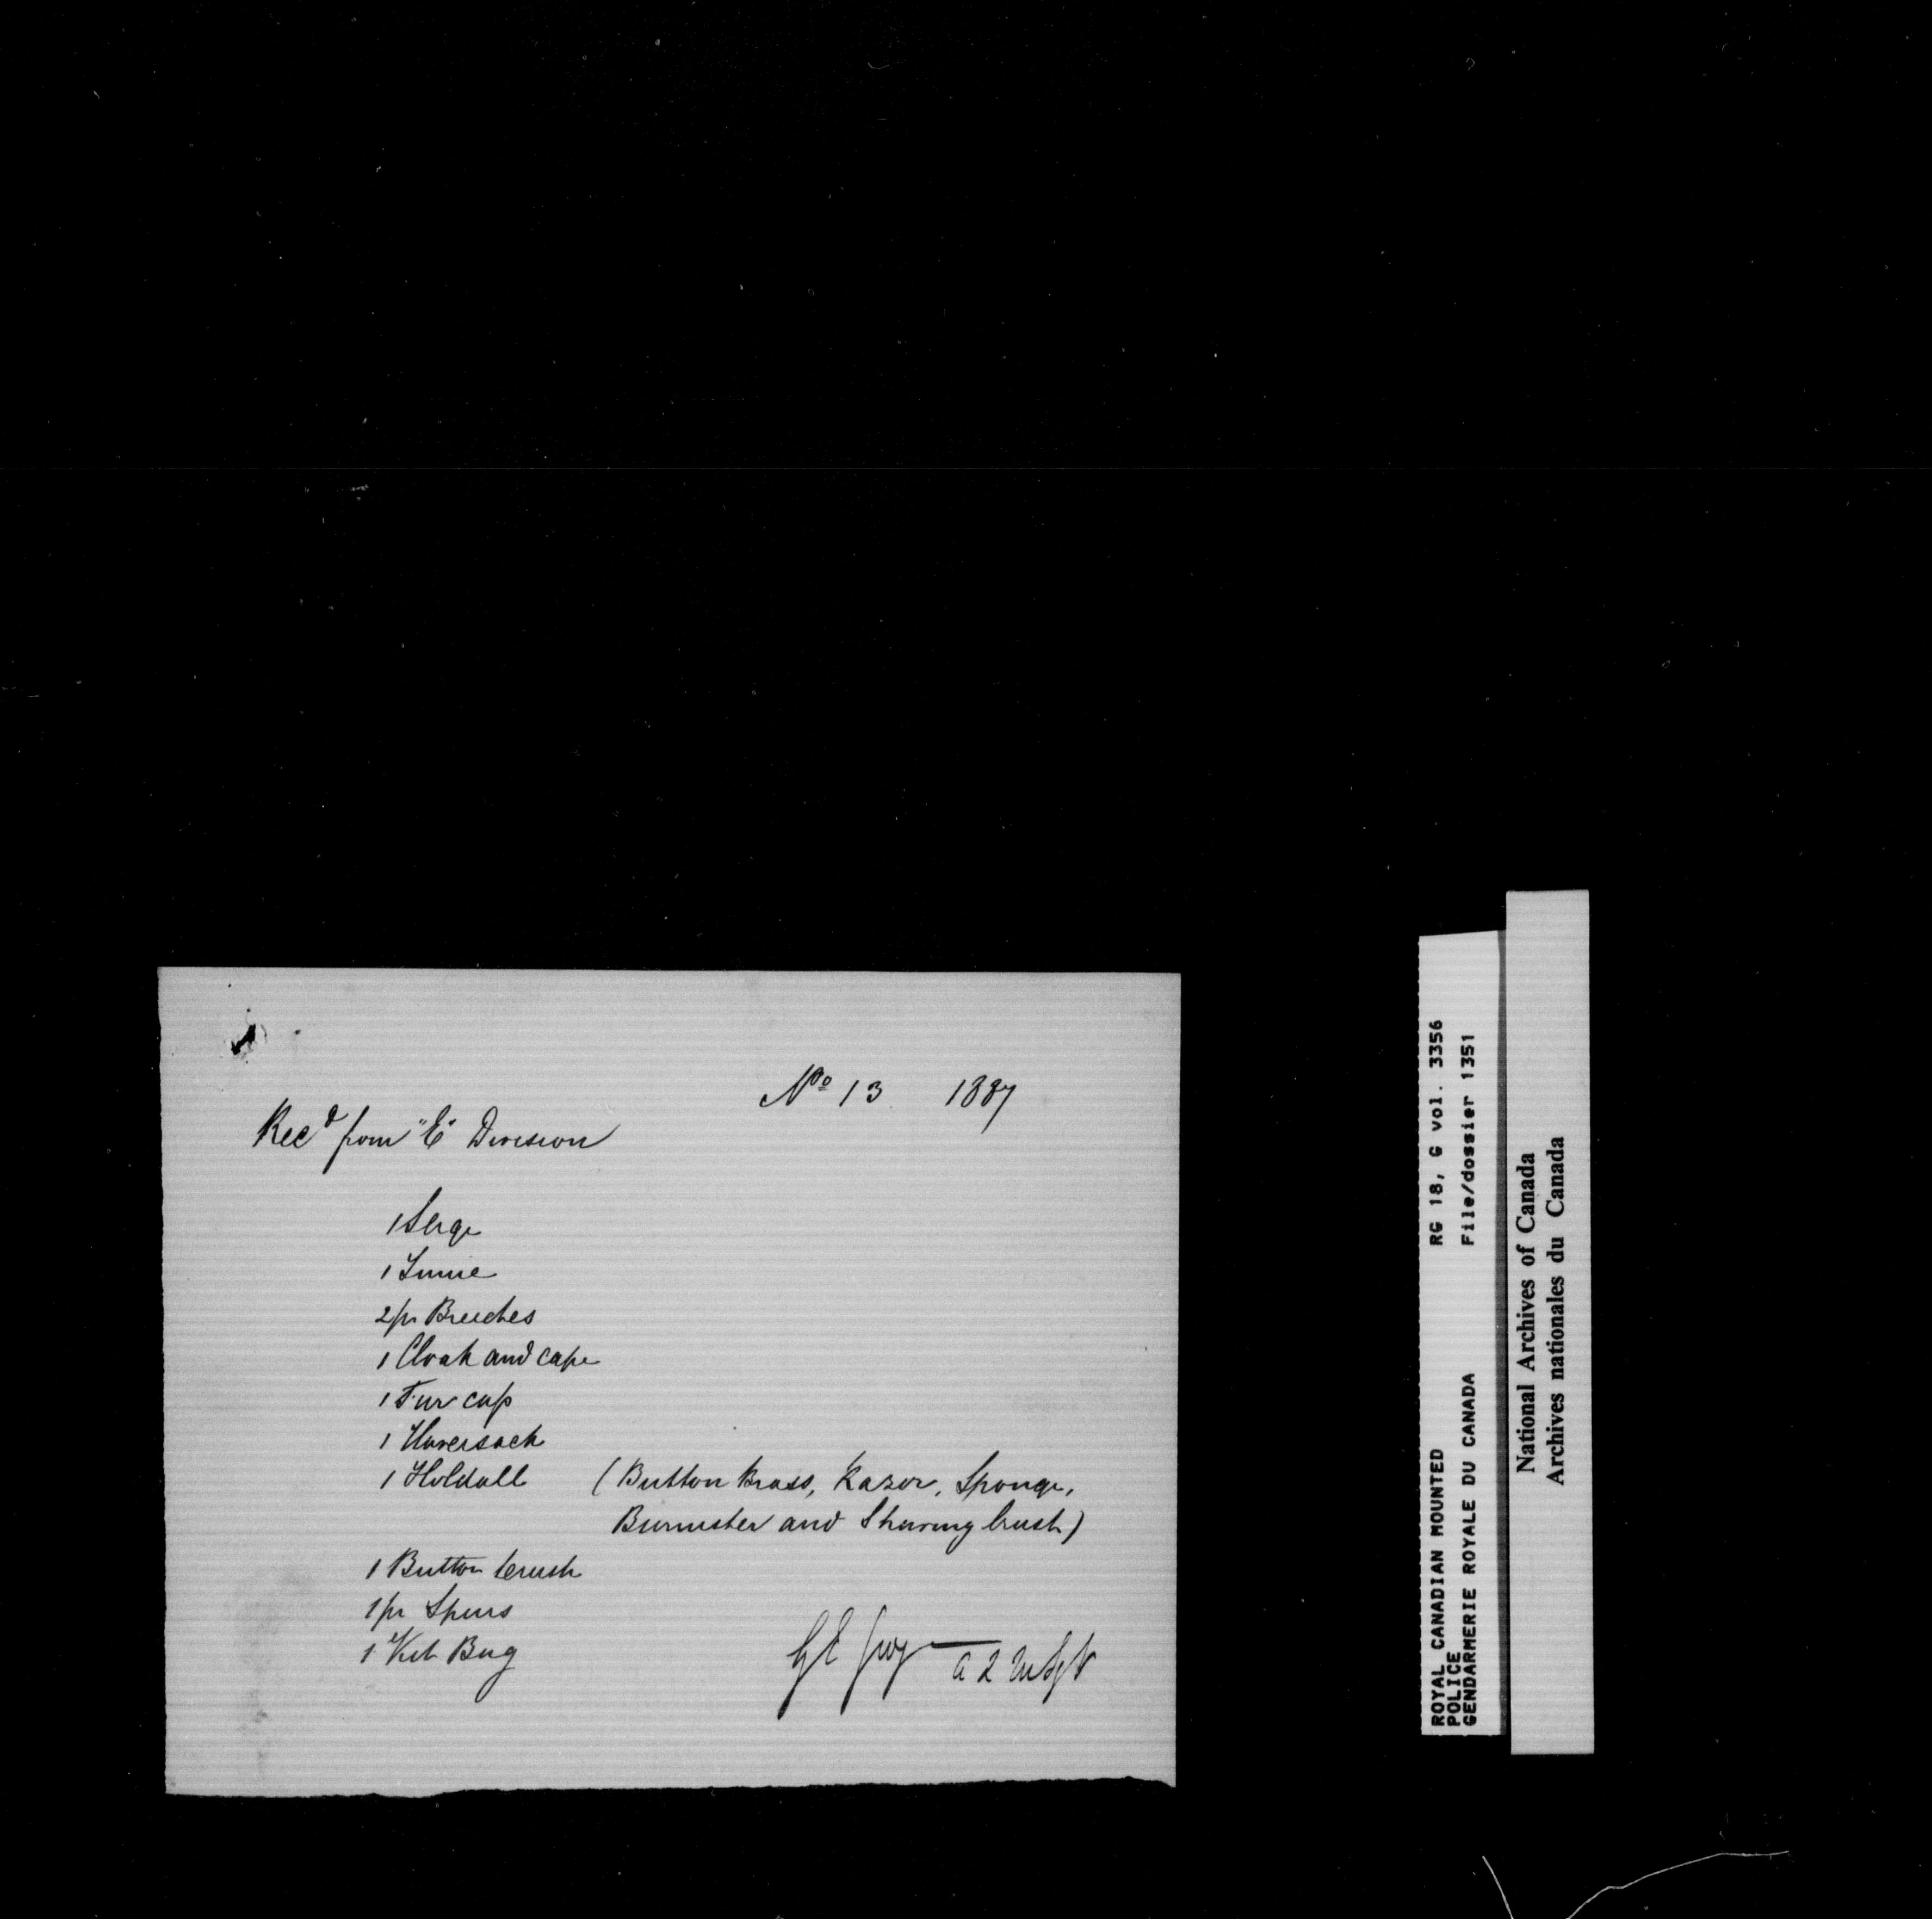 No 13 1887
Recd from "E" Division
1 Serge
1 Tunic
2 pr Breeches
1 Cloak and cape
1 Fur cap
1 Haversack
1 Holdall (Button Brass, Razor, Sponge,
Burnisher and Shaving brush)
1 Button brush
1 pr Spurs
1 Kit Bag
ROYAL CANADIAN MOUNTED RG 18, G vol. 3356
POLICE
GENDARMERIE ROYALE DU CANADA File/dossier 1351
National Archives of Canada
Archives nationales du Canada